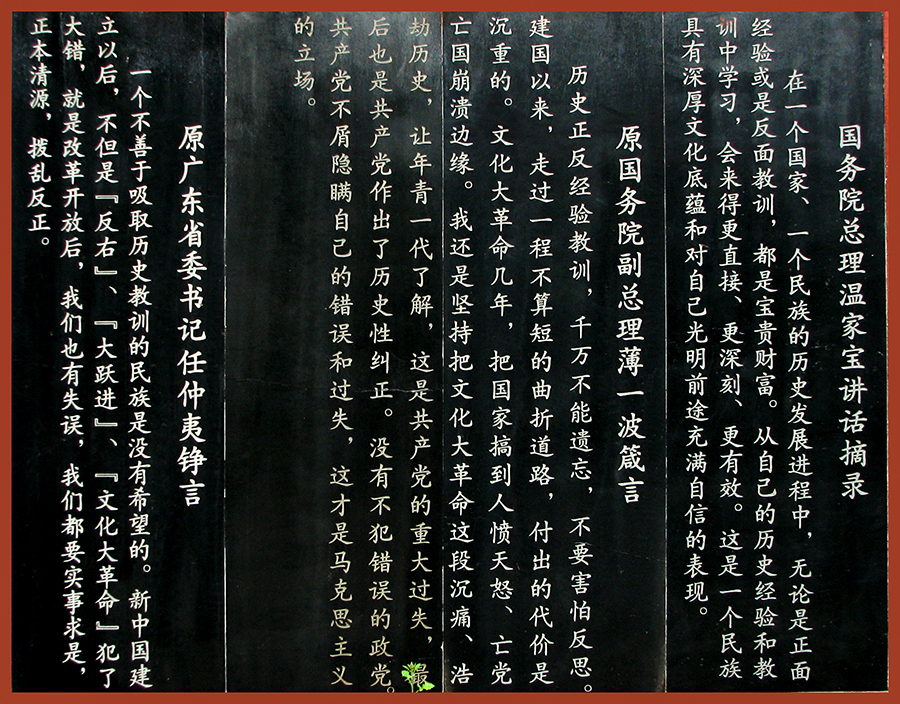 国务院总理温家宝讲话摘录
在一个国家、一个民族的历史发展进程中，无论是正面
经验或是反面教训，都是宝贵财富。从自己的历史经验和教
训中学习，会来得更直接、更深刻、更有效。这是一个民族
具有深厚文化底蕴和对自己光明前途充满自信的表现。
原国务院副总理薄一波箴言
历史正反经验教训，千万不能遗忘，不要害怕反思。
建国以来，走过一程不算短的曲折道路，付出的代价是
沉重的。文化大革命几年，把国家搞到人愤天怒、亡党
亡国崩溃边缘。我还是坚持把文化大革命这段沉痛、浩
劫历史，让年青一代了解，这是共产党的重大过失，最
后也是共产党作出了历史性纠正。没有不犯错误的政党。
共产党不屑隐瞒自己的错误和过失，这才是马克思主义
的立场。
原广东省委书记任仲夷铮言
一个不善于吸取历史教训的民族是没有希望的。新中国建
立以后，不但是『反右』、『大跃进』、『文化大革命』犯了
大错，就是改革开放后，我们也有失误，我们都要实事求是，
正本清源，拨乱反正。